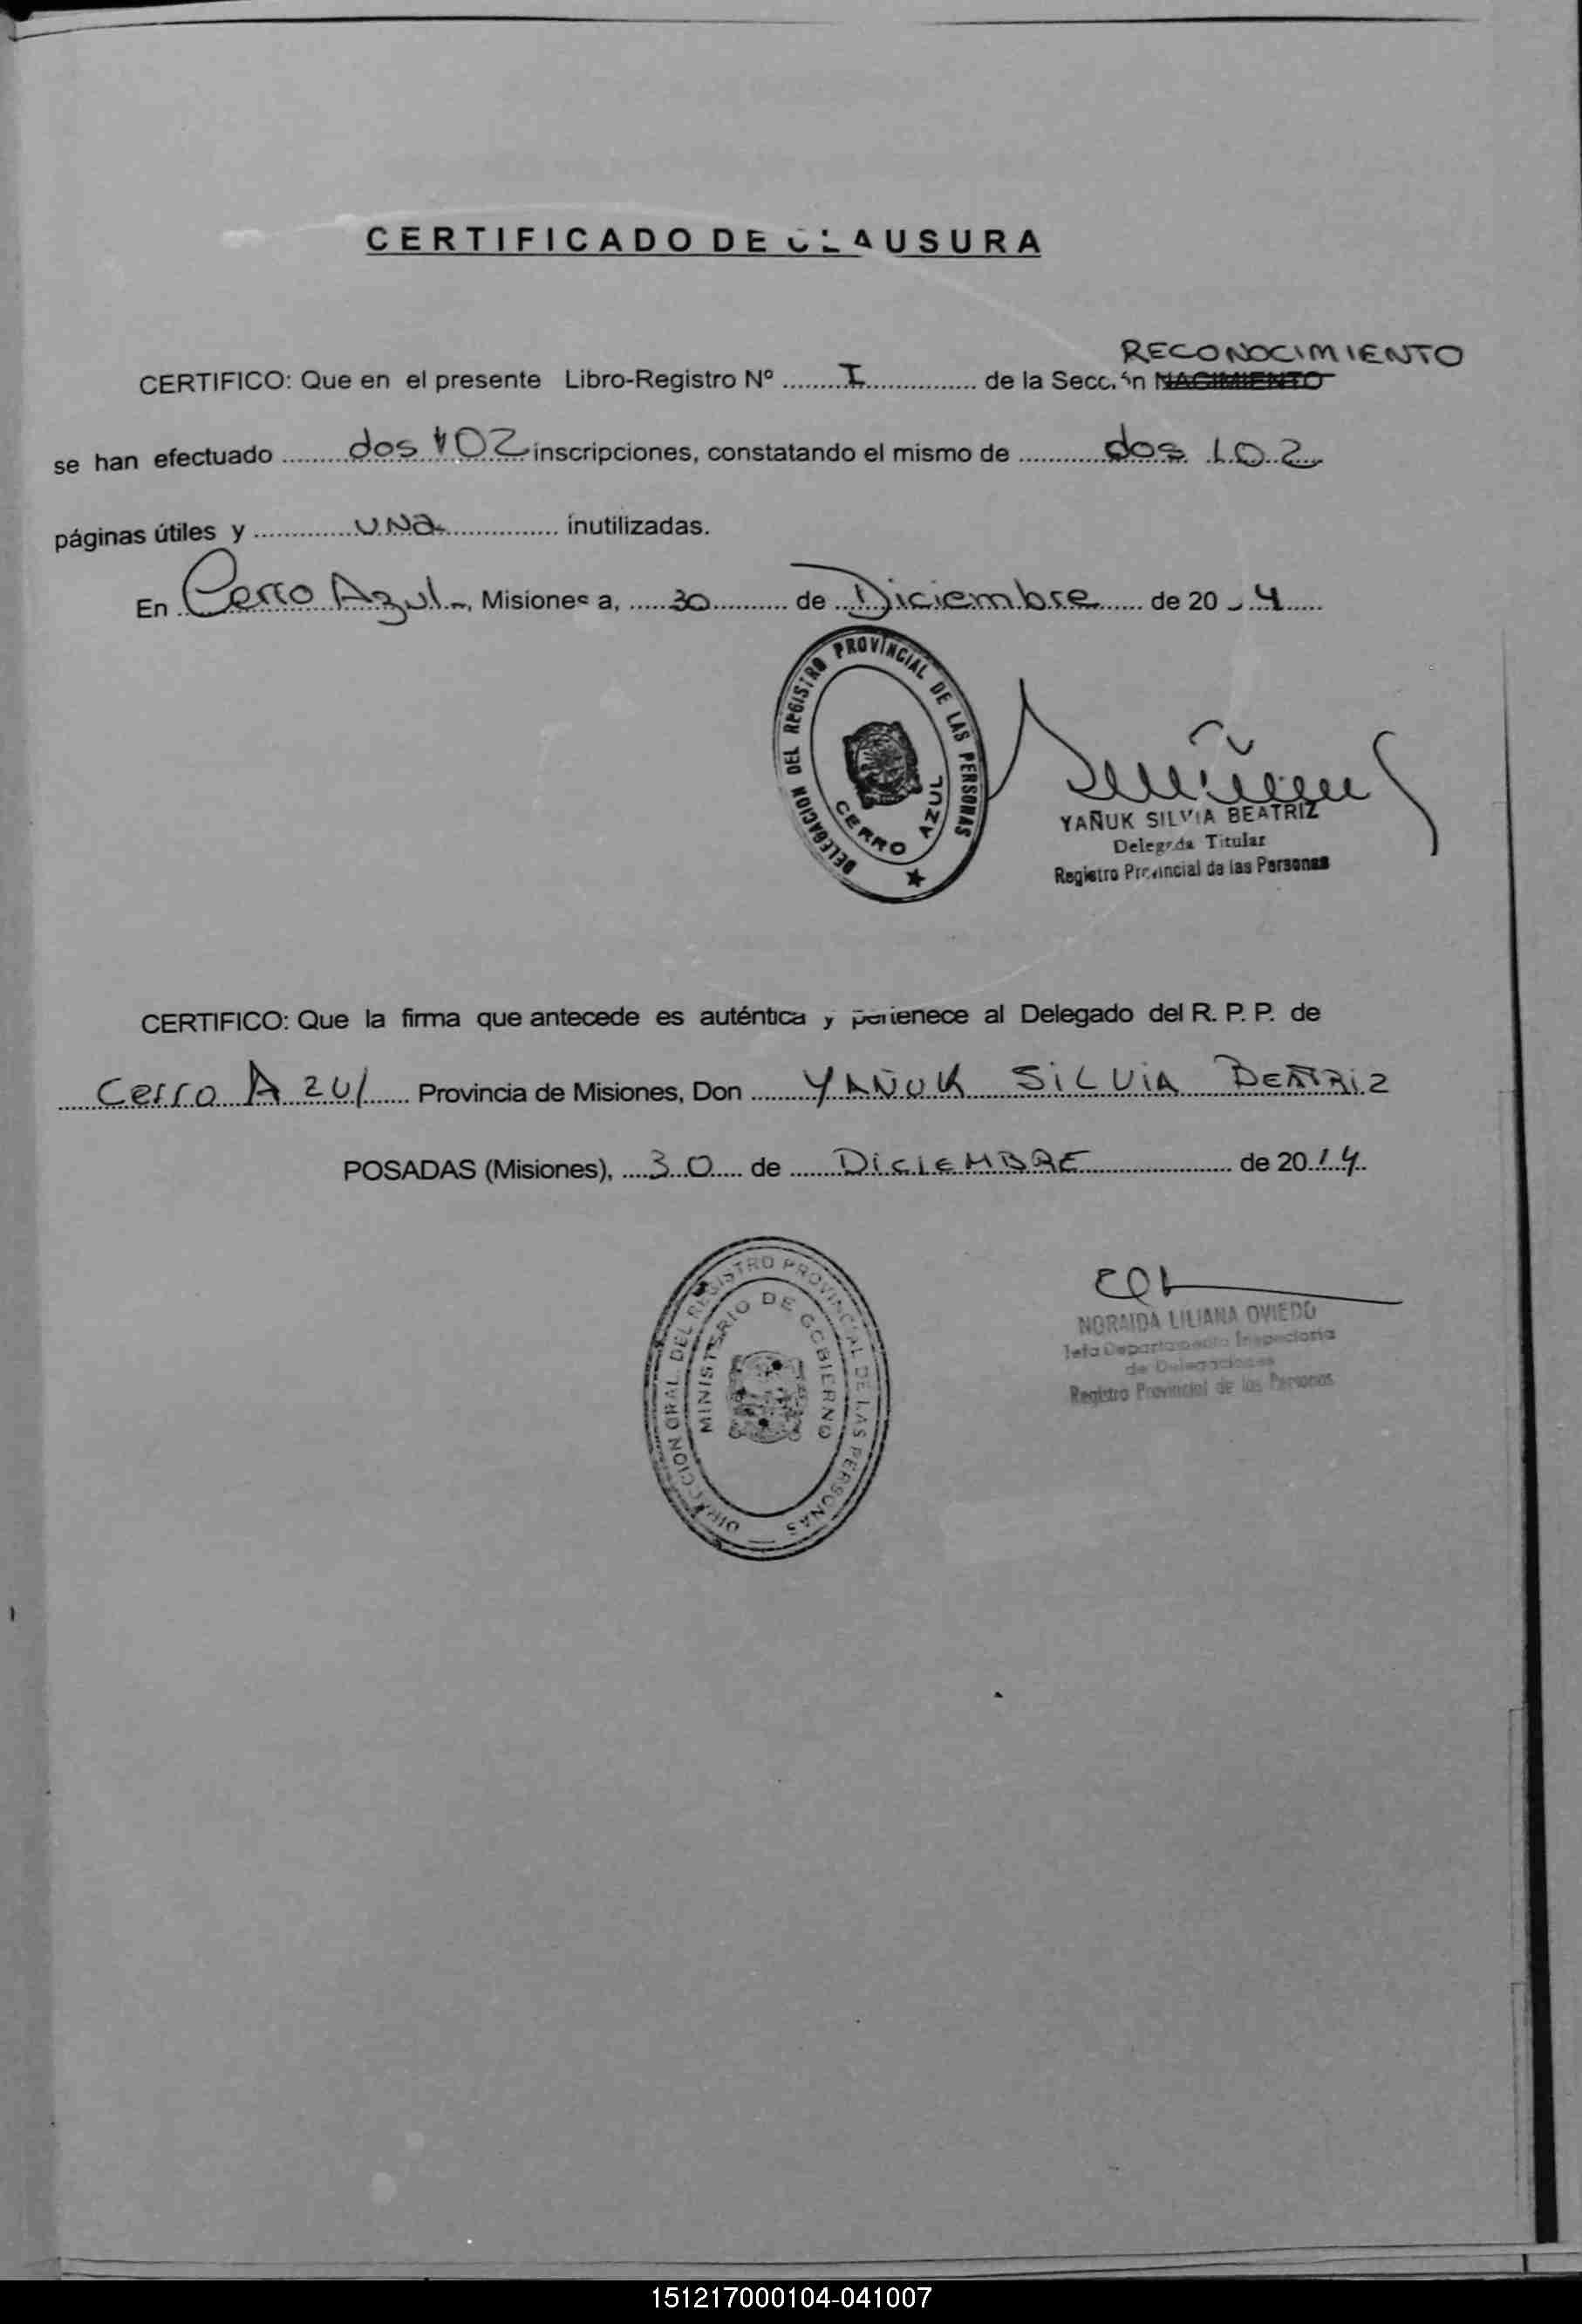 CERTIFICADO DE CLAUSURA
RECONOCIMIENTO
CERTIFICO: Que en el presente Libro-Registro Nº ........I............... de la Sección NACIMIENTO
se han efectuado .........dos 02 inscripciones, constatando el mismo de ............dos 02
páginas útiles y ..............una............... inutilizadas.
En Cerro Azul, Misiones a, ......30........... de ...Diciembre...... de 20 4......
DELEGACION DEL REGISTRO PROVINCIAL DE LAS PERSONAS
CERRO AZUL
YAÑUK SILVIA BEATRIZ
Delegada Titular
Registro Provincial de las Personas
CERTIFICO: Que la firma que antecede es auténtica y pertenece al Delegado del R. P. P. de
Cerro Azul..... Provincia de Misiones, Don .........YAÑUK SILVIA BEATRIZ
POSADAS (Misiones), ....30..... de .......DICIEMBRE.................... de 2014.
DIRECCION GRAL. DEL REGISTRO PROVINCIAL DE LAS PERSONAS
MINISTERIO DE GOBIERNO
NORAIDA LILIANA OVIEDO
Jefa Departamento Inspectoria
de Delegaciones
Registro Provincial de las Personas
151217000104-041007